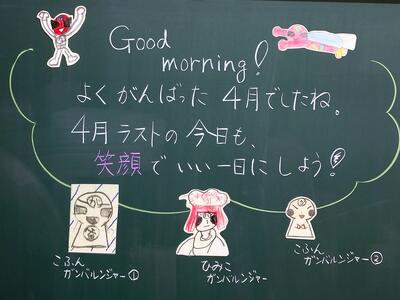 Good
morning!
よくがんばった4月でしたね。
4月ラストの今日も、
笑顔でいい一日にしよう!
こふん
ガンバルンジャー①
ひみこ
ガンバルンジャー
こふん
ガンバルンジャー②